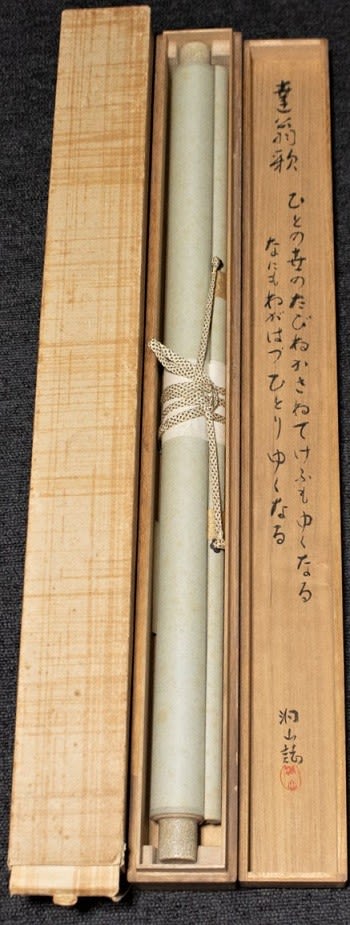 達翁歌
ひとの世のたびねかさねてけふもゆくなる
なにもねがはづひとりゆくなる
洞山誌